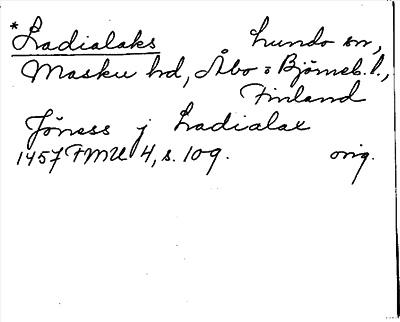 *Ladialaks Lundo sn,
Masku hd, Åbo o Björneb. l.,
Finland
Jöness j Ladialax
1457 FMU 4, s. 109. orig.